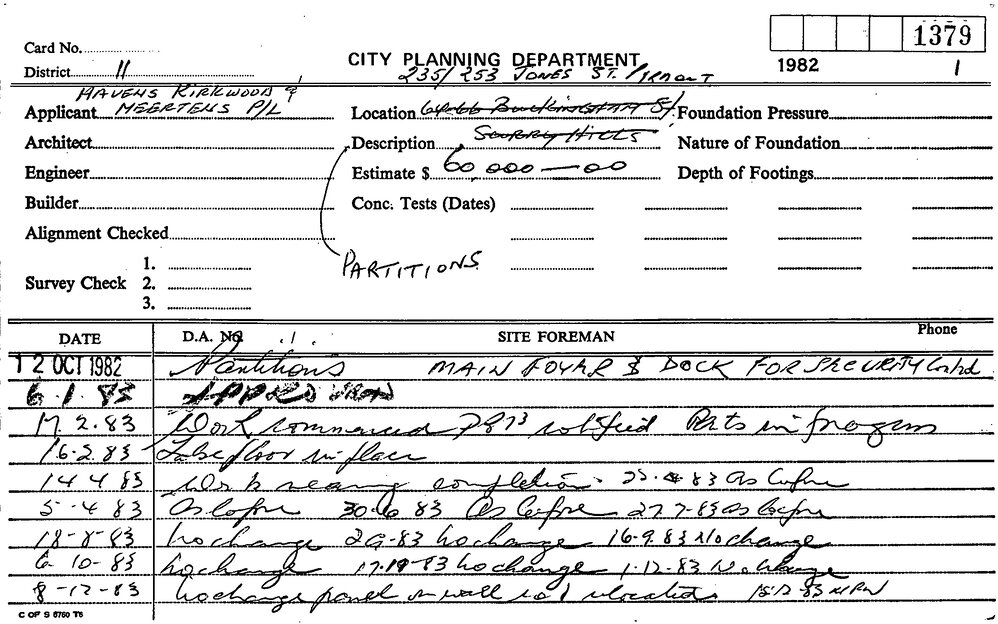 1379
Card No.
CITY PLANNING DEPARTMENT
1982 1
District 11
235/253 JONES ST. PIRMONT
HAVENS KIRKWOOD &
Applicant MEERTENS P/L Location BUCKINGHAM St. Foundation Pressure
Architect Description SURRY HILLS Nature of Foundation
Engineer Estimate $ 60,000—00 Depth of Footings
Builder Conc. Tests (Dates)
Alignment Checked
PARTITIONS
Survey Check 1.
2.
3.
DATE D.A. No. SITE FOREMAN Phone
12 OCT 1982 Partitions MAIN FOYAR & DOCK FOR SECURITY
6.1.83 APPRD
17.2.83 Work commenced notified Parts in progress
16.2.83 False floor in place
14 4 83 Work nearing completion 83 as before
5-4 83 As before 30-6 83 As before 27 7-83 as before
18-8-83 No change 2 9-83 No change 16-9 83 No change
6-10-83 No change 83 No change 1-12-83 No change
8-12-83 No change panel in wall
C OF S 6760 T6